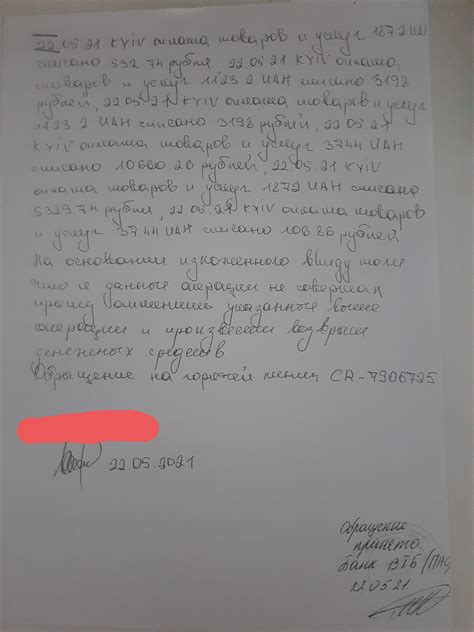 22.05.21 KYiV оплата товаров и услуг 187.2 UAH
списано 532.74 рубля, 22.05.21 KYiV оплата
товаров и услуг 1123.2 UAH списано 3198
рублей, 22.05.21 KYiV оплата товаров и услуг
1123.2 UAH списано 3198 рублей, 22.05.21
KYiV оплата товаров и услуг 3744 UAH
списано 10660.26 рублей, 22.05.21 KYiV
оплата товаров и услуг 1872 UAH списано
5329.74 рубля, 22.05.21 KYiV оплата товаров
и услуг 37.44 UAH списано 106.86 рублей
На основании изложенного ввиду того
что я данные операции не совершал,
прошу отменить указанные выше
операции и произвести возврат
денежных средств
Обращение на горячей линии CR-7906725
22.05.2021
Обращение
принято
Банк ВТБ (ПАО)
22.05.21